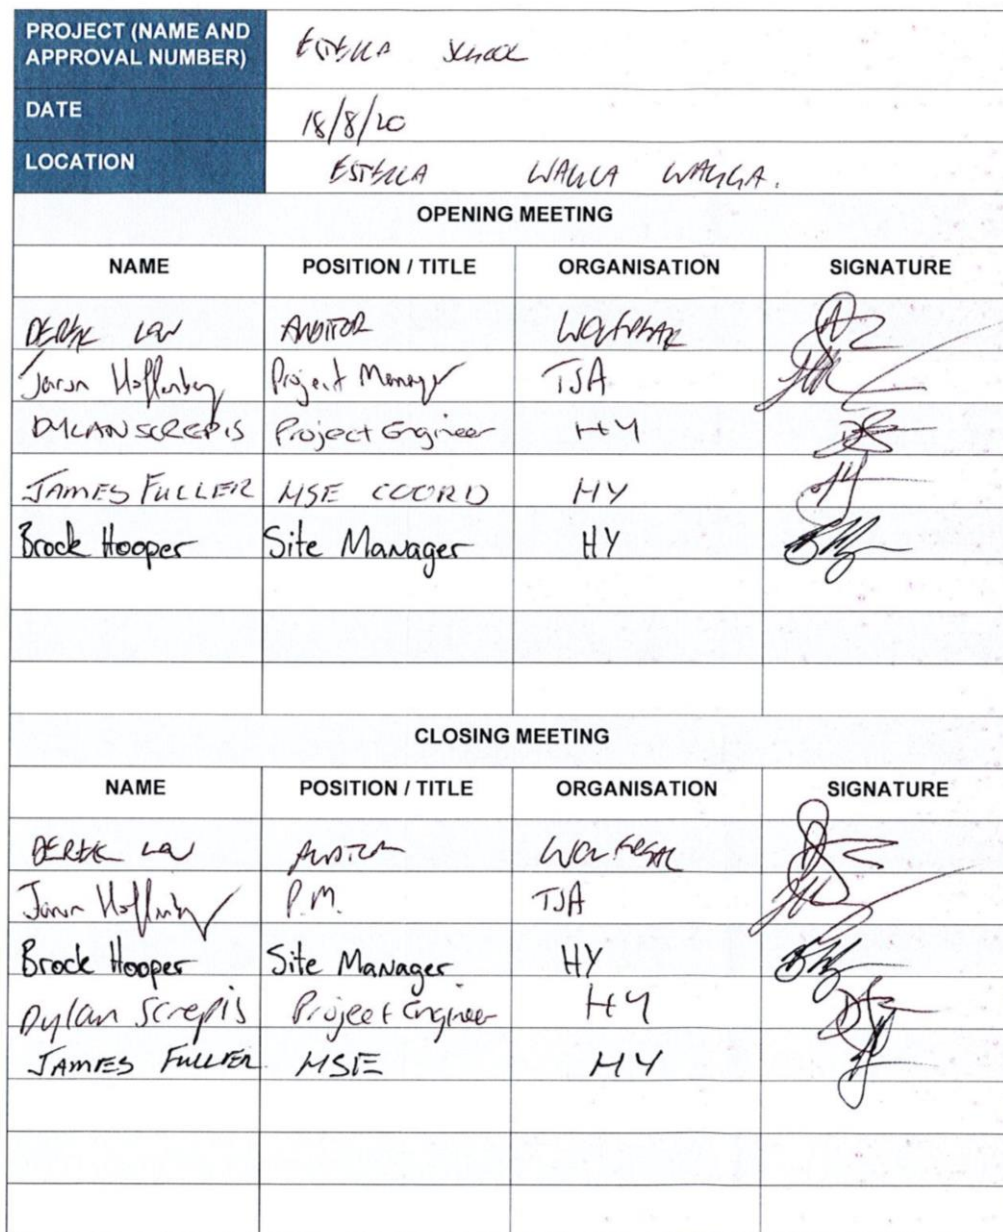 PROJECT (NAME AND
APPROVAL NUMBER)
ESTELLA SCHOOL
DATE
18/8/20
LOCATION
ESTELLA WAGGA WAGGA.
OPENING MEETING
NAME POSITION / TITLE ORGANISATION SIGNATURE
DEREK LOW AUDITOR WOLFPEAK
Project Manager TSA
DYLAN SCREPIS Project Engineer HY
JAMES FULLER HSE COORD HY
Brock Hooper Site Manager HY
CLOSING MEETING
NAME POSITION / TITLE ORGANISATION SIGNATURE
DEREK LOW AUDITOR WOLFPEAK
P.M. TSA
Brock Hooper Site Manager HY
Dylan Screpis Project Engineer HY
JAMES FULLER HSE HY